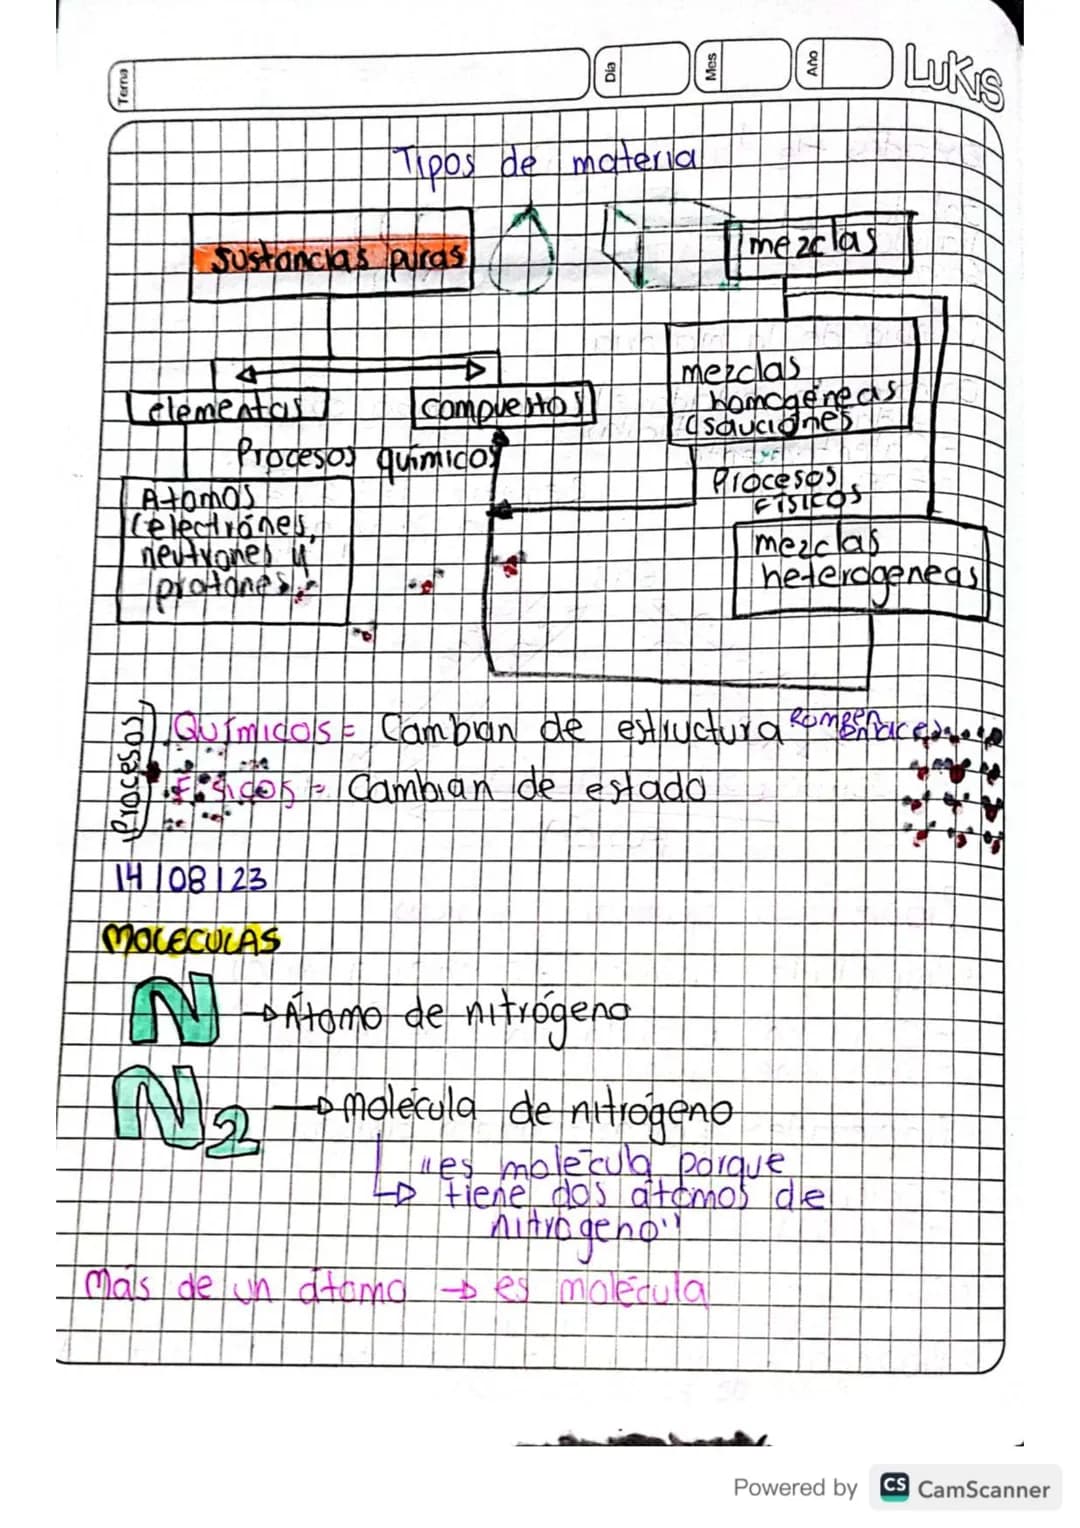 Tema
Día
Mes
Año
LUKIS
Tipos de materia
Sustancias puras
mezclas
elementos
compuestos
mezclas
homogéneas
Procesos químicos
Procesos
Físicos
Atomos
(electrónes,
neutrones y
protones.
mezclas
heterogeneas
Procesos
Químicos = Cambian de estructura Rompen enlaces
Fisicos = Cambian de estado
14/08/23
MOLECULAS
N → Átomo de nitrógeno
N2 → molécula de nitrógeno
"es molécula porque
tiene dos átomos de
nitrogeno"
Más de un átomo → es molécula
Powered by CS CamScanner